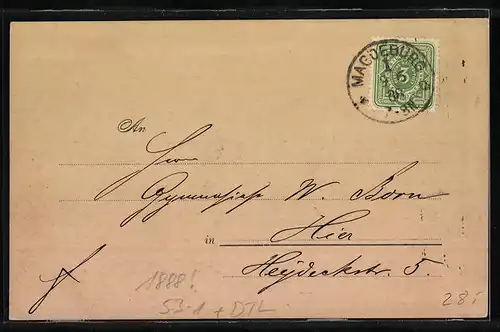 * MAGDEBURG *
1
6
88
7-8N
An
Herrn
Gymnasiast W. Born
in Hier
Heydeckstr. 5.
1888!
53-1 + DTL
28.-